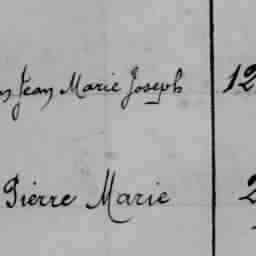 Jean Marie Joseph 12
Pierre Marie 2